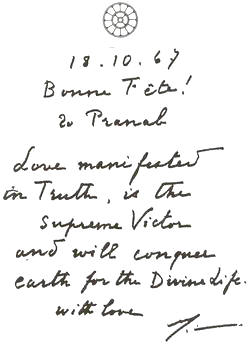 18.10.67
Bonne Fête!
to Pranab
Love manifested
in Truth, is the
Supreme Victor
and will conquer
earth for the Divine Life.
with love